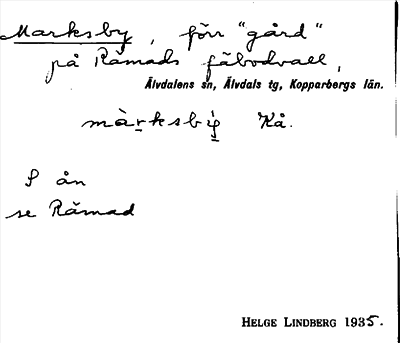 Marksby, förr "gård"
på Råmads fäbodvall,
Älvdalens sn, Älvdals tg, Kopparbergs län.
Kå.
S ån
se Råmad
HELGE LINDBERG 1935.